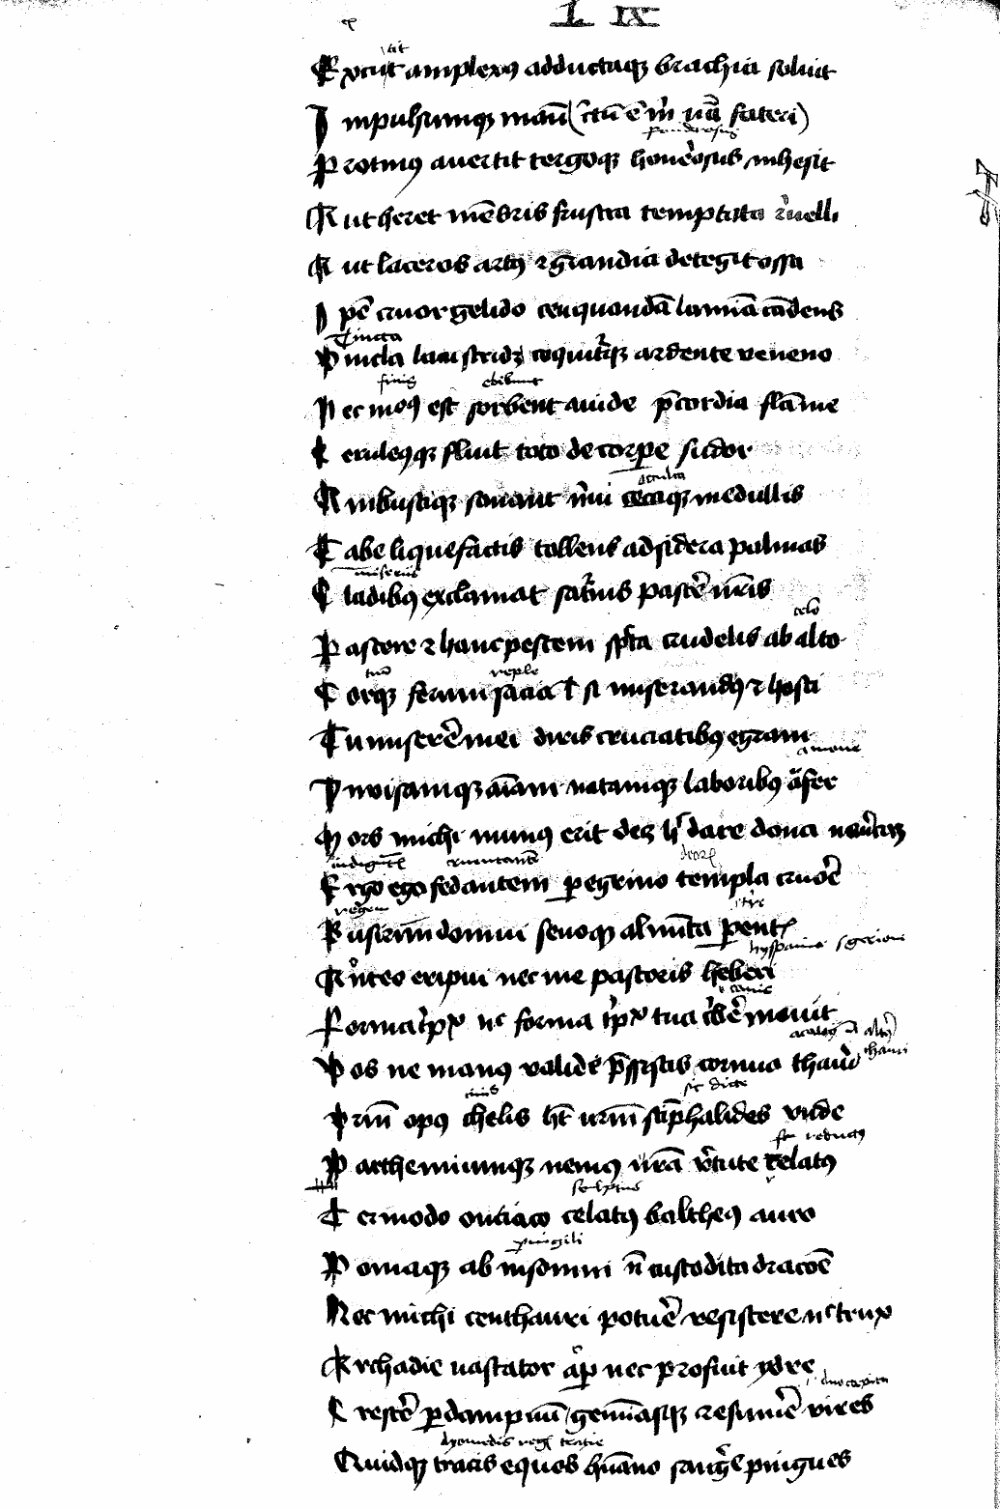 IX
Excutit amplexus adductaque brachia soluit
Impulsumque manu (certum est michi uera fateri)
ponderosus
Protinus auertit tergoque honerosus inhesit
Aut heret membris frustra temptata reuelli
Aut laceros artus et grandia detegit ossa
Ipse cruor gelido ceu quondam lamina candens
Tincta
Tincta lacu stridet coquiturque ardente ueneno
finis ebibunt
Nec modus est sorbent auide precordia flamme
Ceruleusque fluit toto de corpore sudor
occulta
Ambustique sonant nerui cecaque medullis
Tabe liquefactis tollens ad sidera palmas
miseriis
Cladibus exclamat saturnia pascere nostris
celo
Pascere et hanc pestem specta crudelis ab alto
reple
Corque ferum sacia uel si miserandus et hosti
Tu miserere mei diris cruciatibus egram
amoue
Inuisamque animam natamque laboribus aufer
Mors michi munus erit decet hec dare dona nouercam
Ergo ego fedantem peregrino templa cruore
regem
Busirim domui seuoque alimenta parentis
hyspania gerioni
Antheo eripui nec me pastoris hiberi
Forma triplex nec forma triplex tua cerbere mouit
Vos ne manus ualide pressistis cornua thauri
sic dicte
Vestrum opus helis habet uestrum stimphalides unde
Partheniumque nemus uestra uirtute relatus
sculptus
Termodoontiaco celatus baltheus auro
peruigili
Pomaque ab insomni non custodita dracone
Nec michi centhauri potuere resistere nec trux
Archadie uastator aper nec profuit ydre
Crescere per dampnum geminasque resumere uires
dyomedis regis tracie
Quidque tracis equos humano sanguine pingues